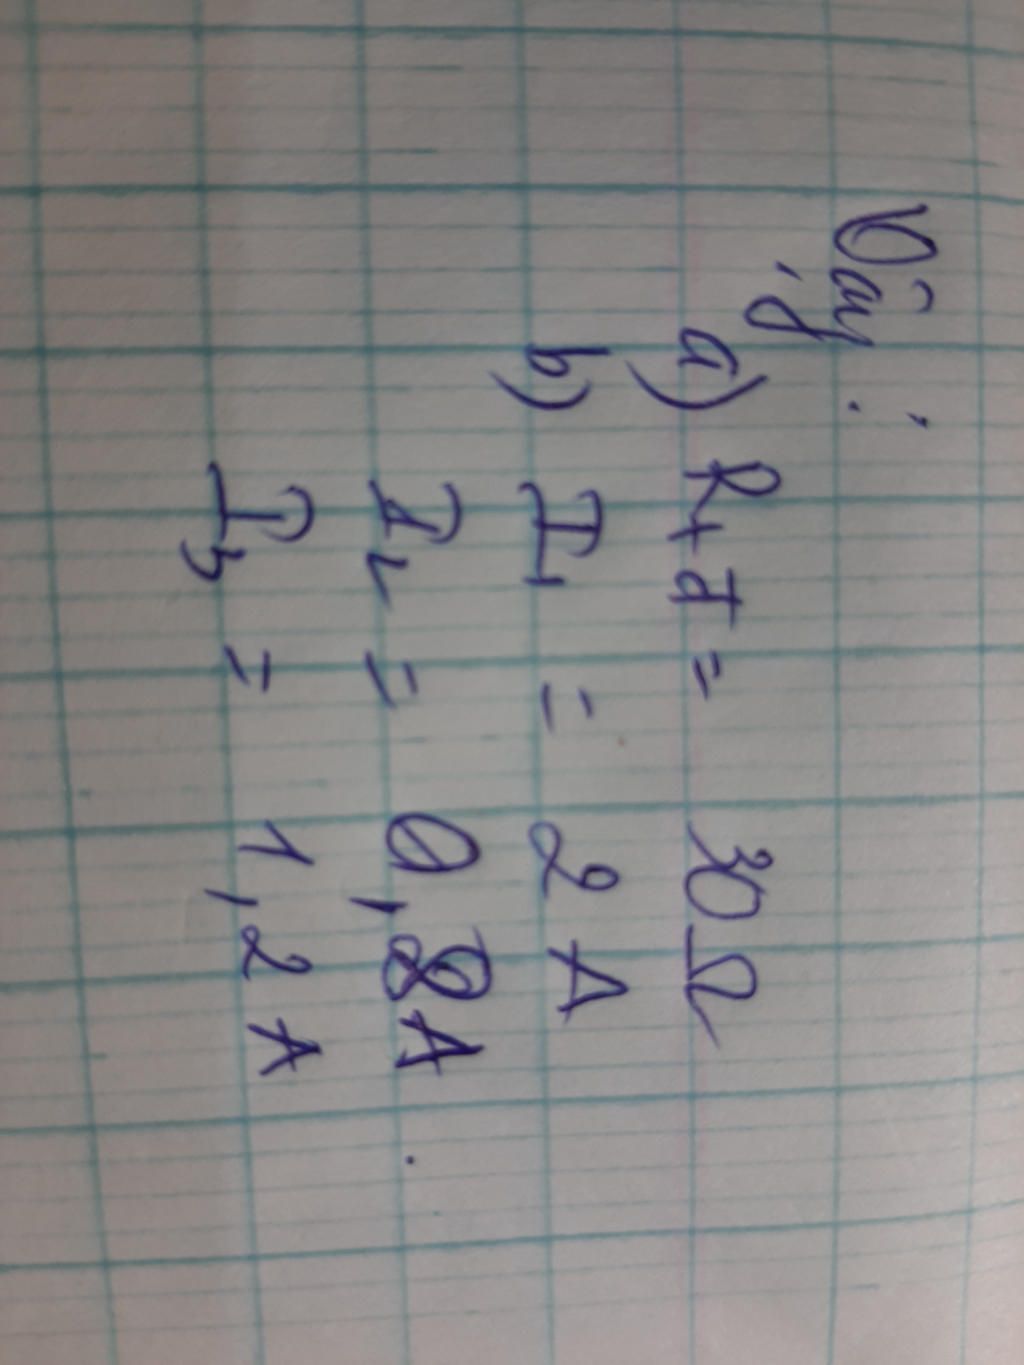 Vậy :
a) Rtđ = 30 Ω
b) I1 = 2 A
I2 = 0,8 A
I3 = 1,2 A